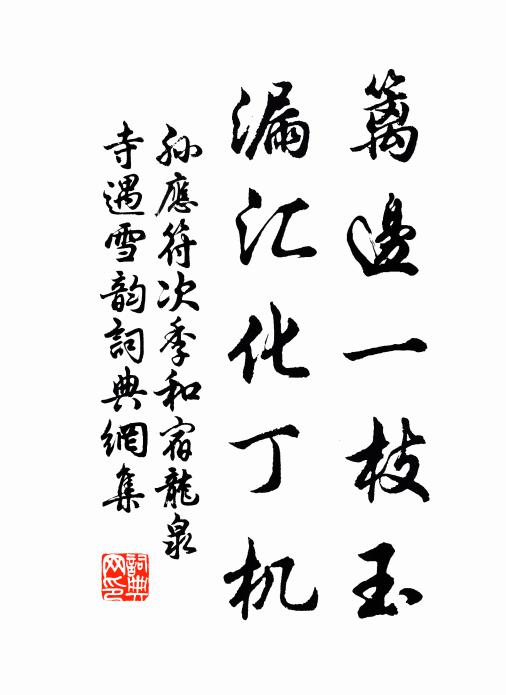 篱邊一枝玉
漏汇化丁机
孫應符次季和宿龍泉
寺遇雪韵詞典網集
詞典
网印